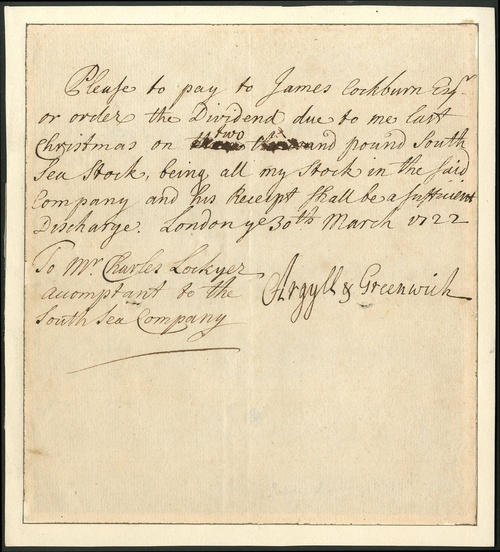 Please to pay to James Cockburn Esqr.
or order the Dividend due to me last
two
Christmas on thousand pound South
Sea Stock, being all my Stock in the said
Company and his Receipt shall be a sufficient
Discharge. London ye 30th March 1722
To Mr. Charles Lockyer
accomptant to the
South Sea Company
Argyll & Greenwich